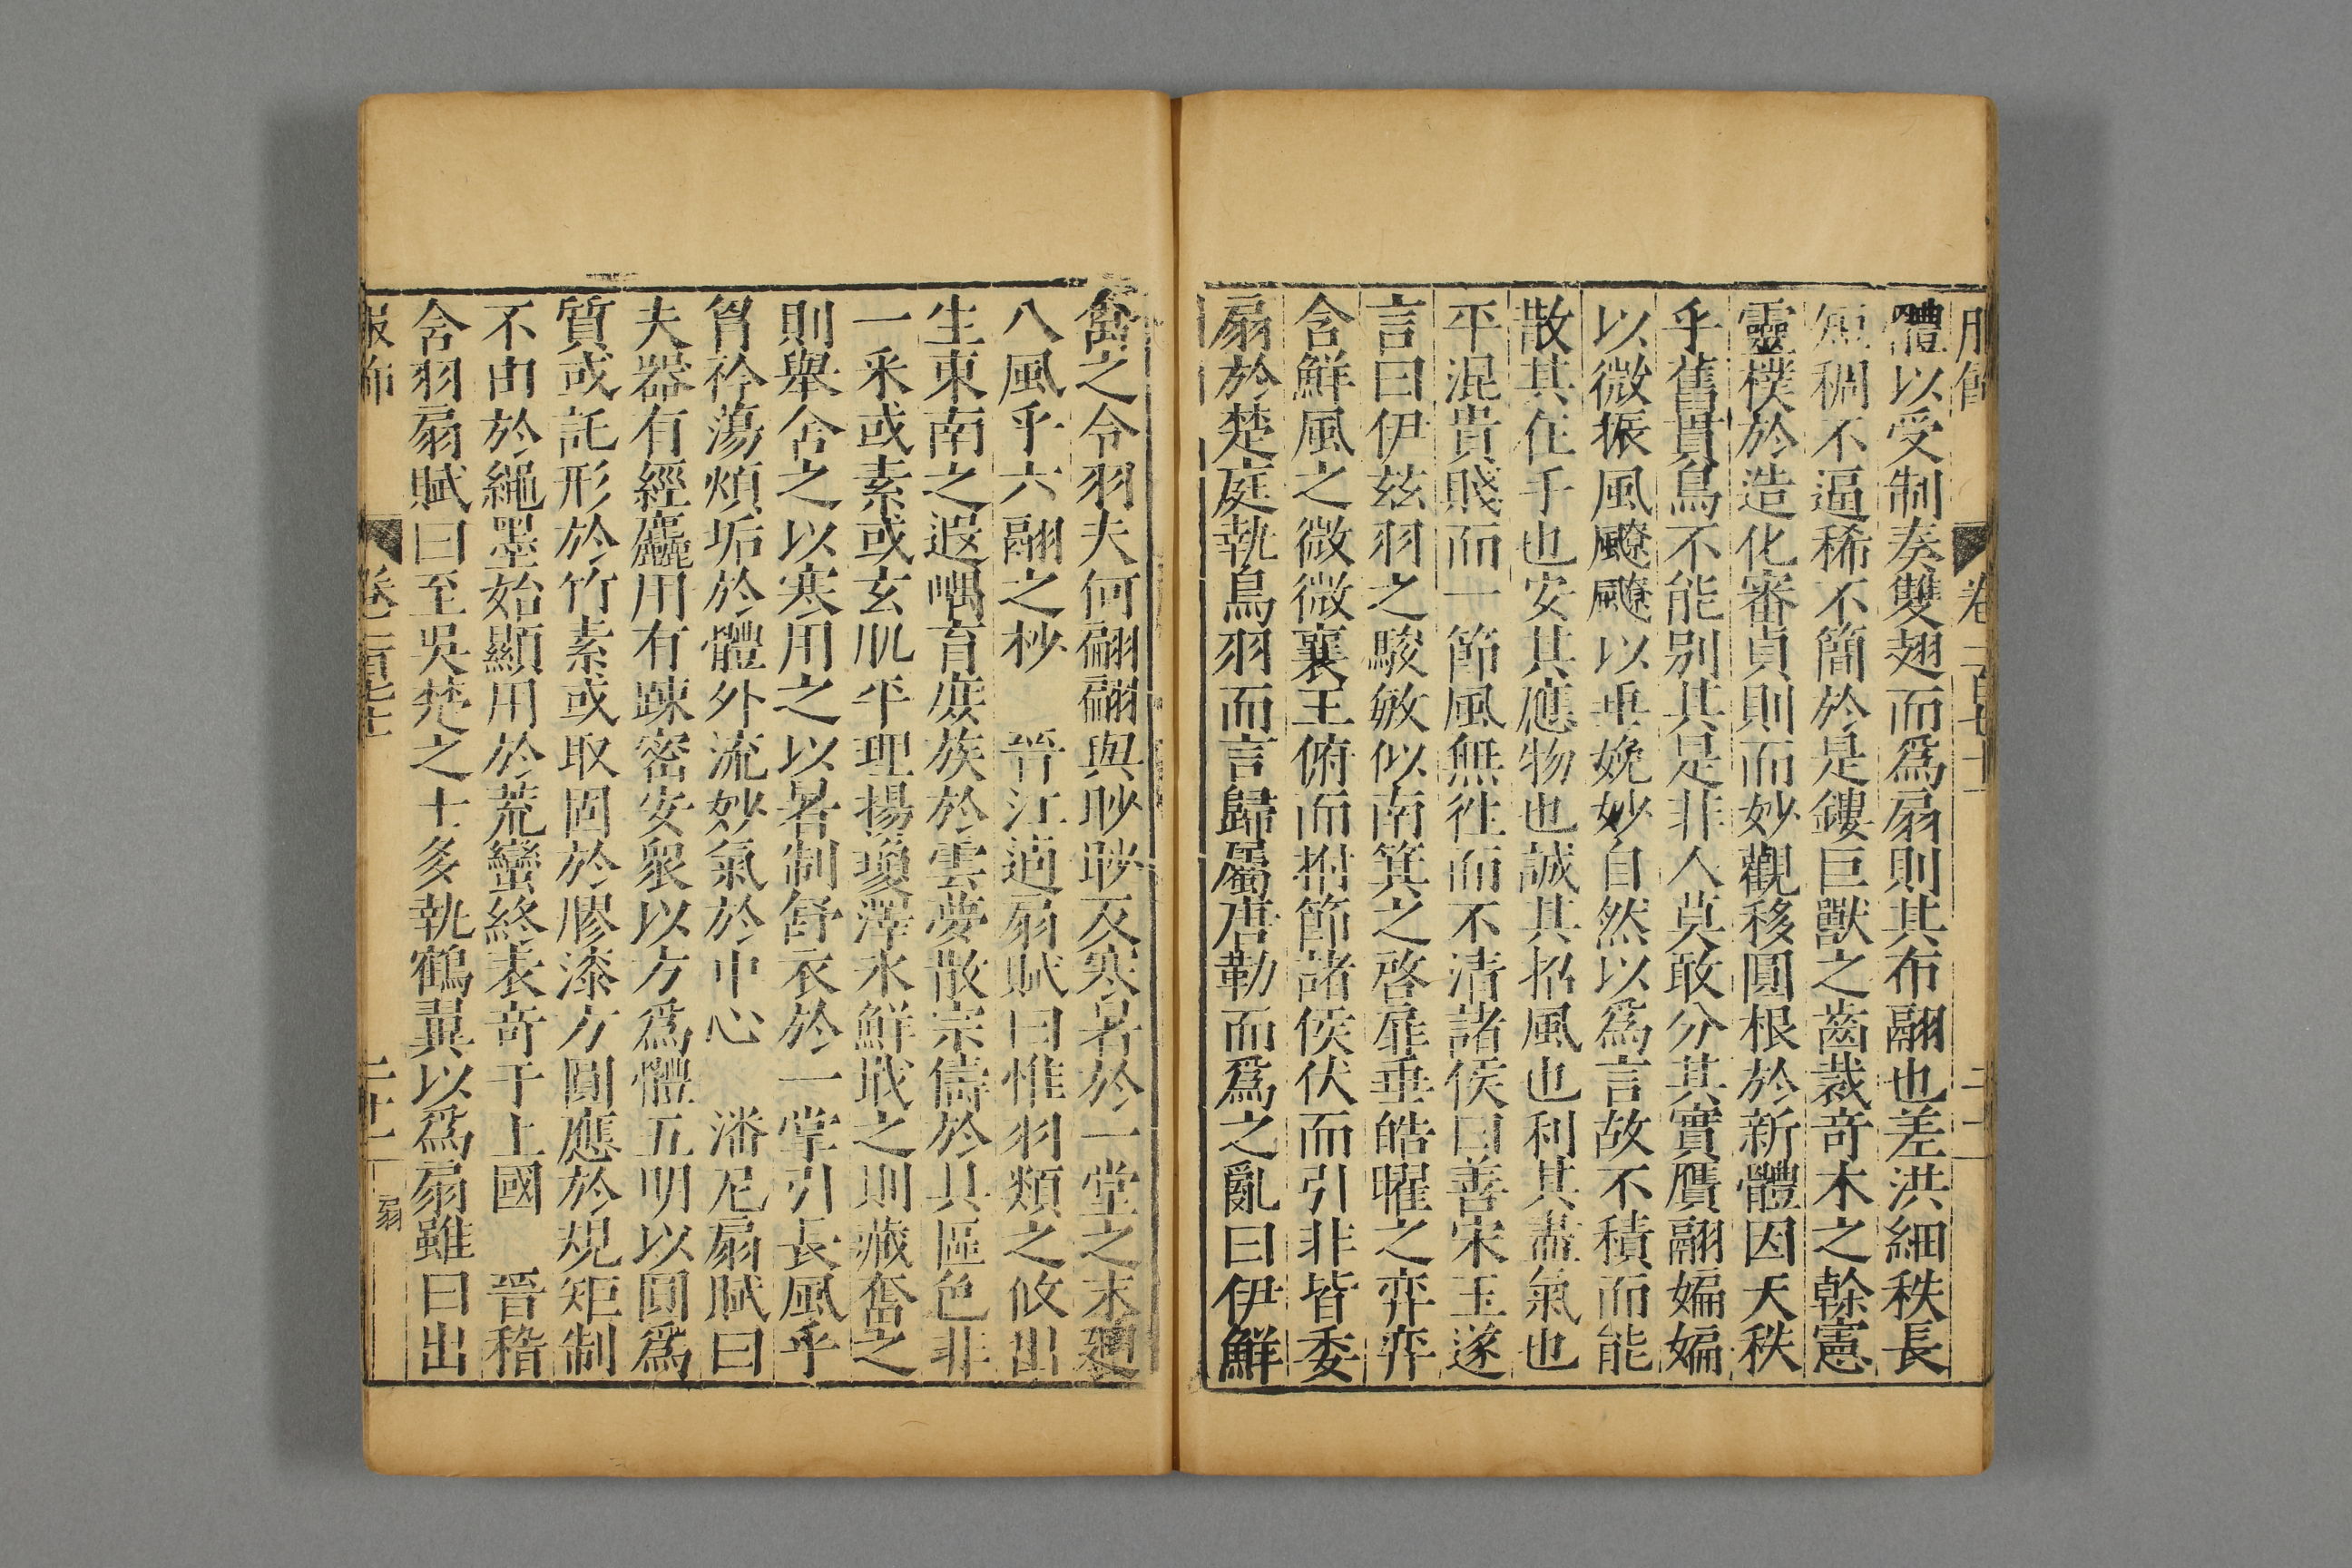 卷二百七十一
二二
體以受制奏雙翅而爲扇則其布翮也差洪細秩長
短稠不逼稀不簡於是鏤巨獸之齒裁奇木之幹憲
靈樸於造化審貞則而妙觀移圓根於新體因天秩
乎舊貫鳥不能別其是非人莫敢分其實贋翮媥媥
以微振風飉飉以垂婏妙自然以爲言故不積而能
散其在手也安其應物也誠其招風也利其盡氣也
平混貴賤而一節風無往而不清諸侯曰善宋玉遂
言曰伊玆羽之駿敏似南箕之啓扉垂皓曜之弈弈
含鮮風之微微襄王俯而拊節諸侯伏而引非皆委
扇於楚庭執鳥羽而言歸屬唐勒而爲之亂曰伊鮮
禽之令羽夫何翩翩與眇眇反寒暑於一堂之末迴
八風乎六翮之杪 晉江逌扇賦曰惟羽類之攸出
生東南之遐嵎育庶族於雲夢散宗儔於具區色非
一采或素或玄肌平理揚瓊澤水鮮戢之則藏奮之
則舉舍之以寒用之以暑制舒衣於一掌引長風乎
胷衿蕩煩垢於體外流妙氣於中心 潘尼扇賦曰
夫器有經麤用有踈密安衆以方爲體五明以圓爲
質或託形於竹素或取固於膠漆方圓應於規矩制
不由於繩墨始顯用於荒蠻終表奇于上國 晉稽
含羽扇賦曰至吳楚之士多執鶴翼以爲扇雖曰出
服飾
卷二百七十一
二十二
扇